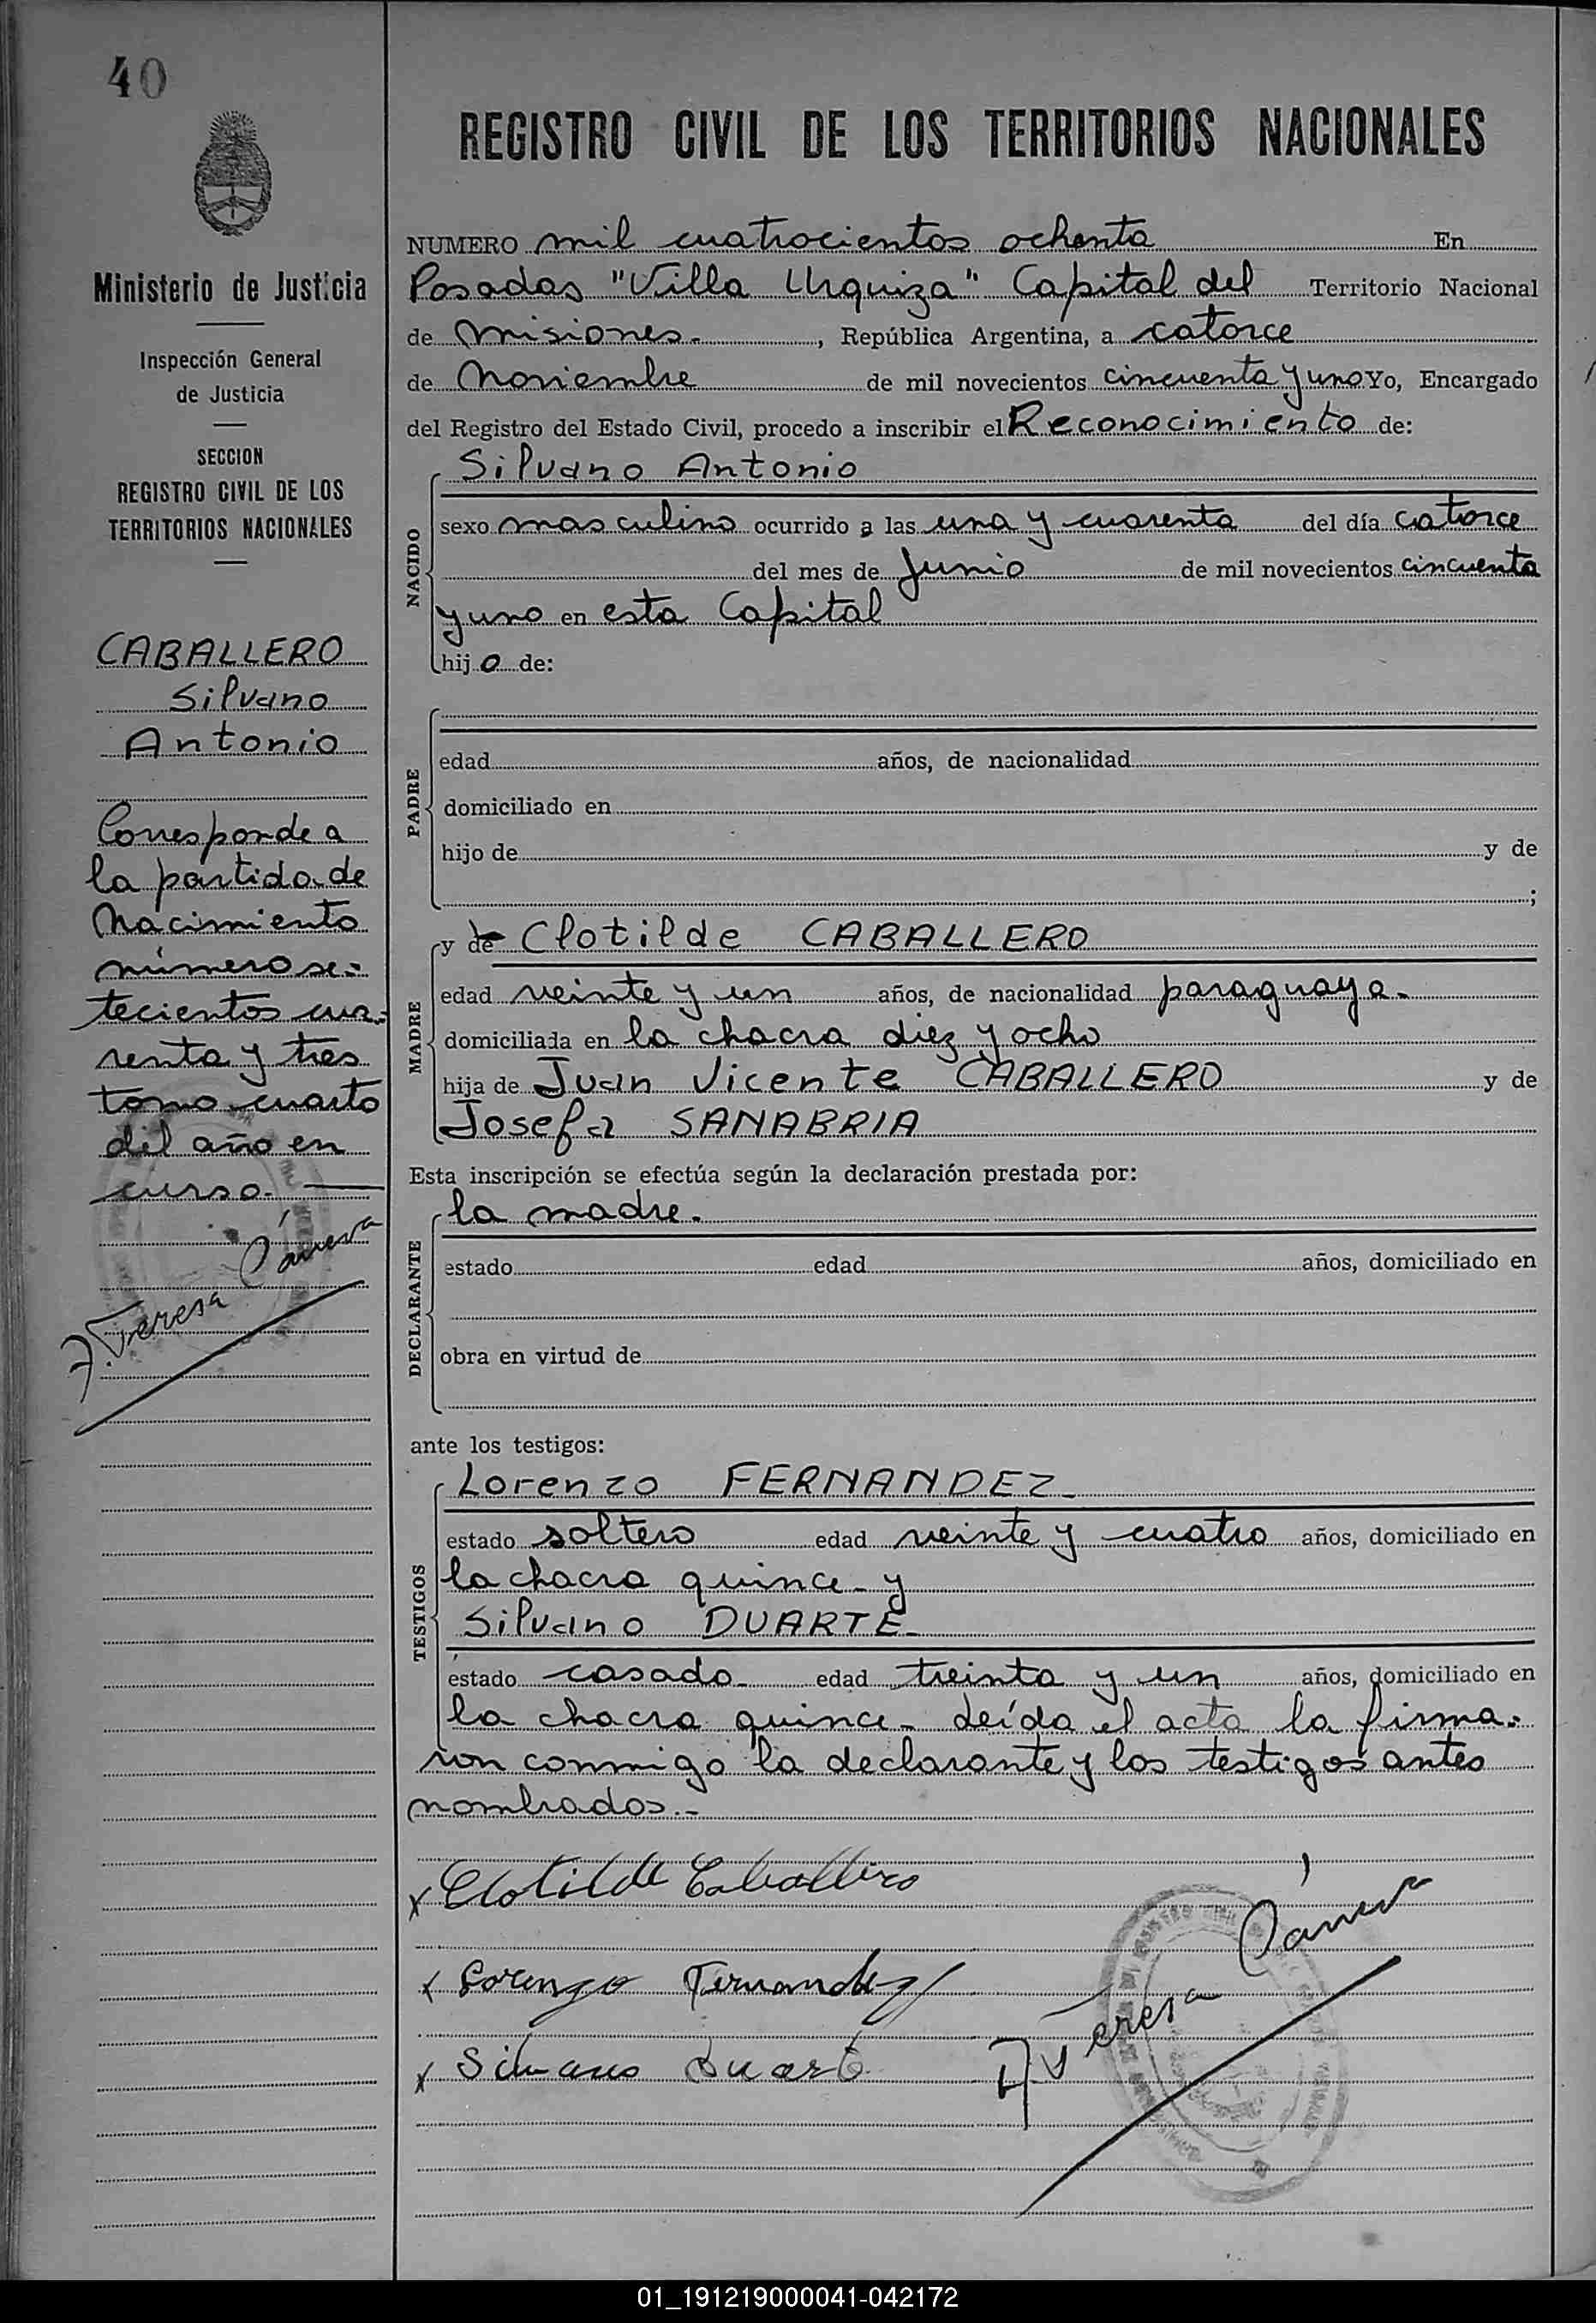 40
Ministerio de Justicia
Inspección General
de Justicia
SECCION
REGISTRO CIVIL DE LOS
TERRITORIOS NACIONALES
CABALLERO
Silvano
Antonio
Corresponde a
la partida de
Nacimiento
número se=
tecientos cua=
renta y tres
tomo cuarto
del año en
curso.
Teresa
REGISTRO CIVIL DE LOS TERRITORIOS NACIONALES
NUMERO mil cuatrocientos ochenta En
Posadas "Villa Urquiza" Capital del Territorio Nacional
de Misiones. , República Argentina, a catorce
de Noviembre de mil novecientos cincuenta y uno Yo, Encargado
del Registro del Estado Civil, procedo a inscribir el Reconocimiento de:
NACIDO
Silvano Antonio
sexo masculino ocurrido a las una y cuarenta del día catorce
del mes de Junio de mil novecientos cincuenta
y uno en esta Capital
hijo de:
PADRE
edad años, de nacionalidad
domiciliado en
hijo de y de
;
MADRE
y de Clotilde CABALLERO
edad veinte y un años, de nacionalidad paraguaya.
domiciliada en la chacra diez y ocho
hija de Juan Vicente CABALLERO y de
Josefa SANABRIA
Esta inscripción se efectúa según la declaración prestada por:
DECLARANTE
la madre.
estado edad años, domiciliado en
obra en virtud de
ante los testigos:
TESTIGOS
Lorenzo FERNANDEZ
estado soltero edad veinte y cuatro años, domiciliado en
la chacra quince - y
Silvano DUARTE
estado casado edad treinta y un años, domiciliado en
la chacra quince - Leída el acta la firma=
ron conmigo la declarante y los testigos antes
nombrados.-
x Clotilde Caballero
x Lorenzo Fernandez
x Silvano Duarte
Teresa
01_191219000041-042172